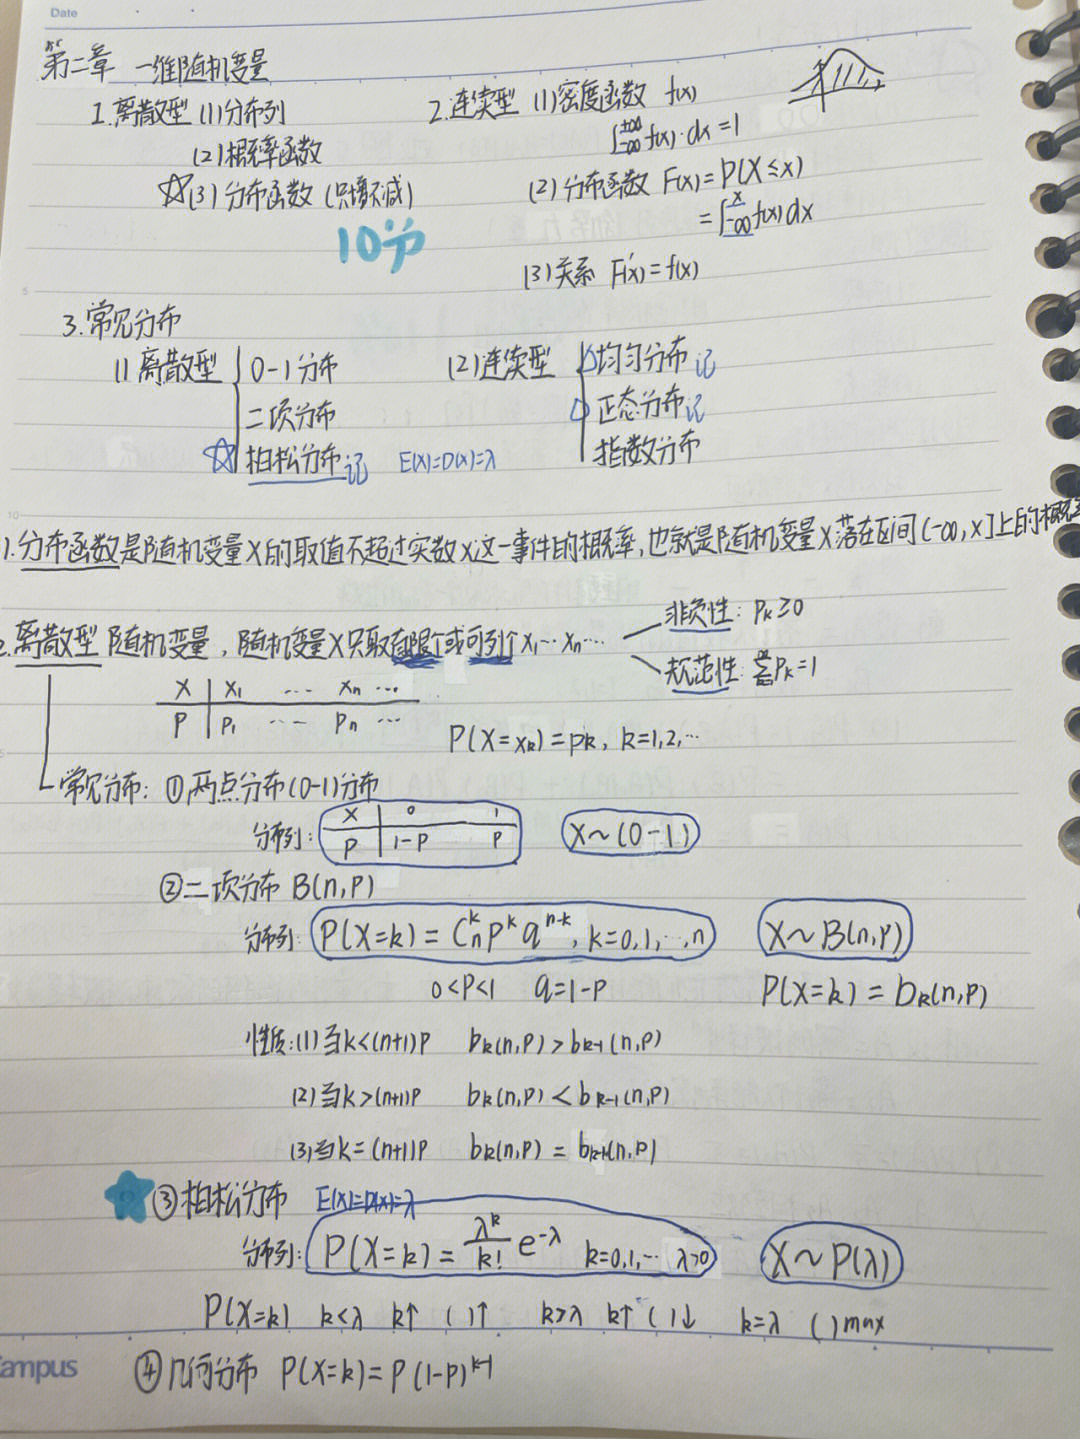 Date
第二章 一维随机变量
1.离散型 (1)分布列
(2)概率函数
☆(3)分布函数 (只增不减)
10分
2.连续型 (1)密度函数 f(x)
∫_{-∞}^{+∞} f(x)·dx=1
(2)分布函数 F(x)=P(X≤x)
=∫_{-∞}^{x} f(x)dx
(3)关系 F'(x)=f(x)
3.常见分布
(1)离散型 0-1分布
二项分布
☆ 柏松分布 记 E(X)=D(X)=λ
(2)连续型 均匀分布 记
正态分布 记
指数分布
1.分布函数是随机变量X的取值不超过实数x这一事件的概率,也就是随机变量X落在区间(-∞,x]上的概率
2.离散型随机变量,随机变量X只取有限个或可列个x₁…xₙ…
非负性: Pk≥0
规范性: ΣPk=1
X x₁ … xₙ …
P P₁ … Pₙ …
P(X=xk)=pk, k=1,2,…
常见分布: ①两点分布(0-1)分布
分布列: X 0 1
P 1-P P
X~(0-1)
②二项分布 B(n,p)
分布列: P(X=k)=Cₙᵏ pᵏ qⁿ⁻ᵏ, k=0,1,…,n X~B(n,p)
0<P<1 q=1-P P(X=k)=bk(n,p)
性质:(1)当k<(n+1)p bk(n,p)>bk-1(n,p)
(2)当k>(n+1)p bk(n,p)<bk-1(n,p)
(3)当k=(n+1)p bk(n,p)=bk-1(n,p)
③柏松分布 E(X)=D(X)=λ
分布列: P(X=k)=λᵏ/k! e^{-λ} k=0,1,… (λ>0) X~P(λ)
P(X=k) k<λ k↑ ( )↑ k>λ k↑ ( )↓ k=λ ( )max
④几何分布 P(X=k)=P(1-P)ᵏ⁻¹
ampus